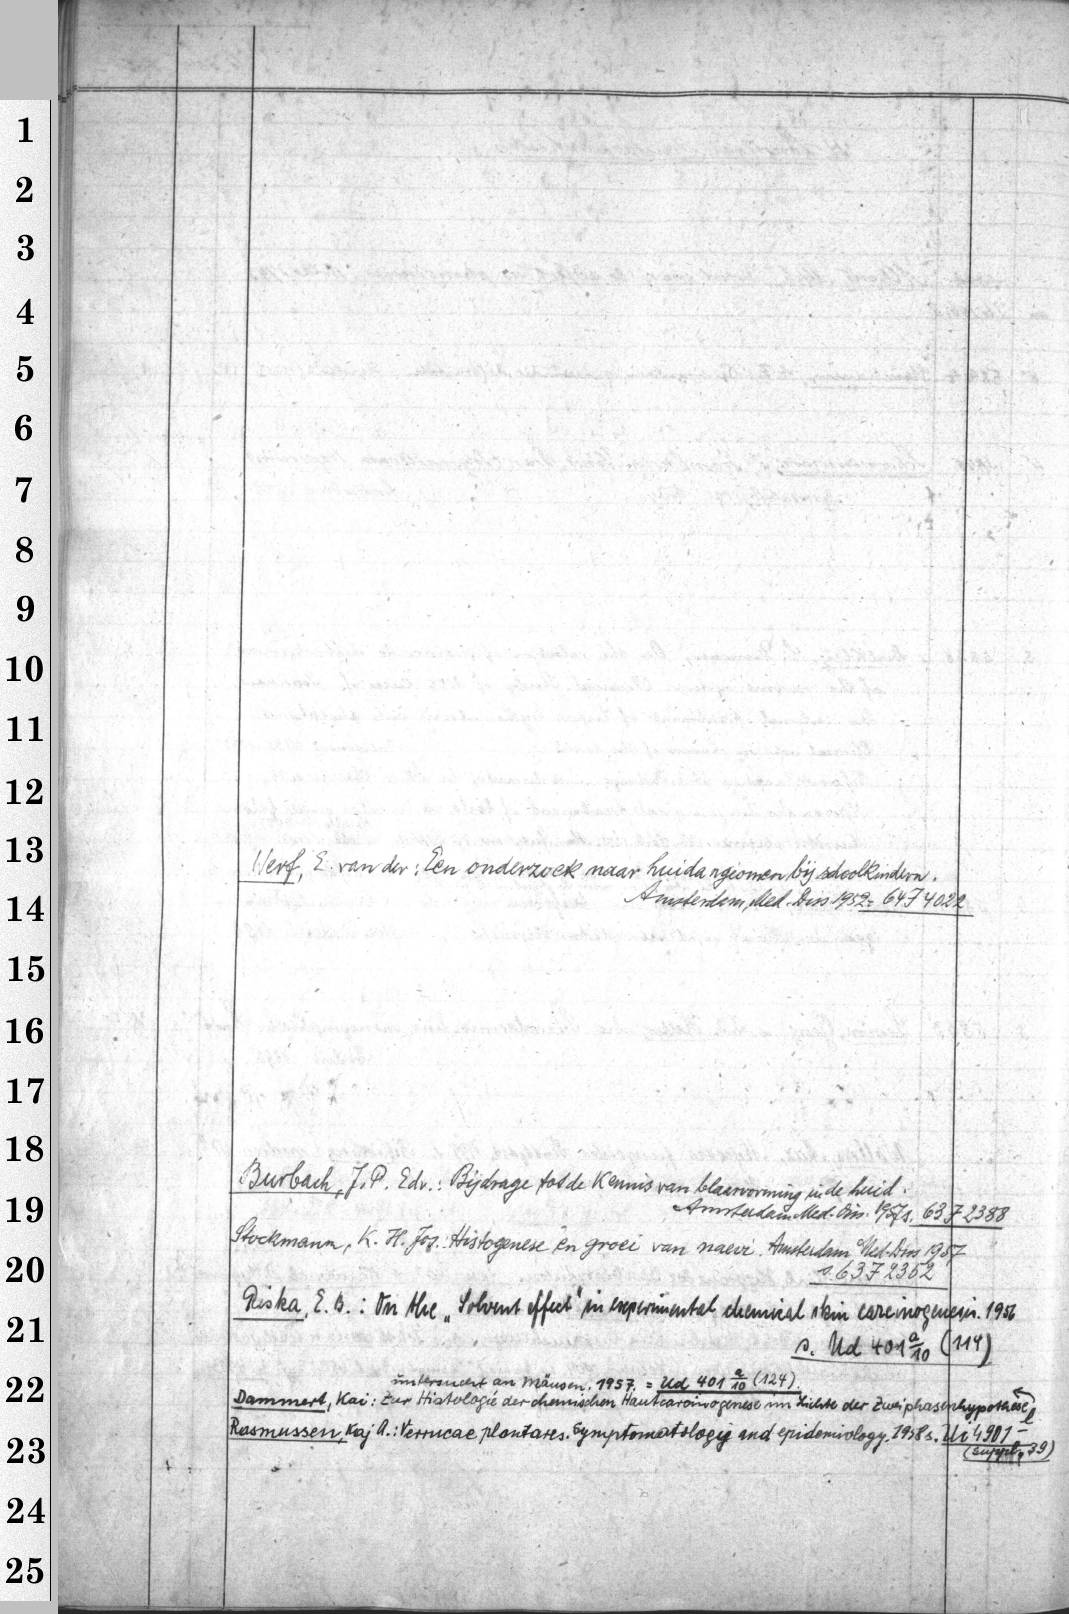 1
2
3
4
5
6
7
8
9
10
11
12
13
Werf, E. van der: Een onderzoek naar huidangiomen bij schoolkindern.
14
Amsterdam, Med. Diss 1952 = 64 F 4022
15
16
17
18
Burbach, J. P. Edv.: Bijdrage tot de Kennis van blaarvorming in de huid.
19
Amsterdam Med. Diss. 1957 s. 63 F 2388
Stockmann, K. H. Jos. Histogenese en groei van naevi. Amsterdam Med. Diss 1957
20
s. 63 F 2352
Riska, E. B.: On the „Solvent effect" in experimental chemical skin carcinogenesis. 1956
21
s. Ud 401 a/10 (114)
22
untersucht an Mäusen. 1957. = Ud 401 a/10 (124).
Dammert, Kai: Zur Histologie der chemischen Hautcarcinogenese im Lichte der Zweiphasenhypothese,
Rasmussen, Kaj A.: Verrucae plantares. Symptomatology and epidemiology. 1958 s. Ui 4901 -
23
(suppl. 39)
24
25